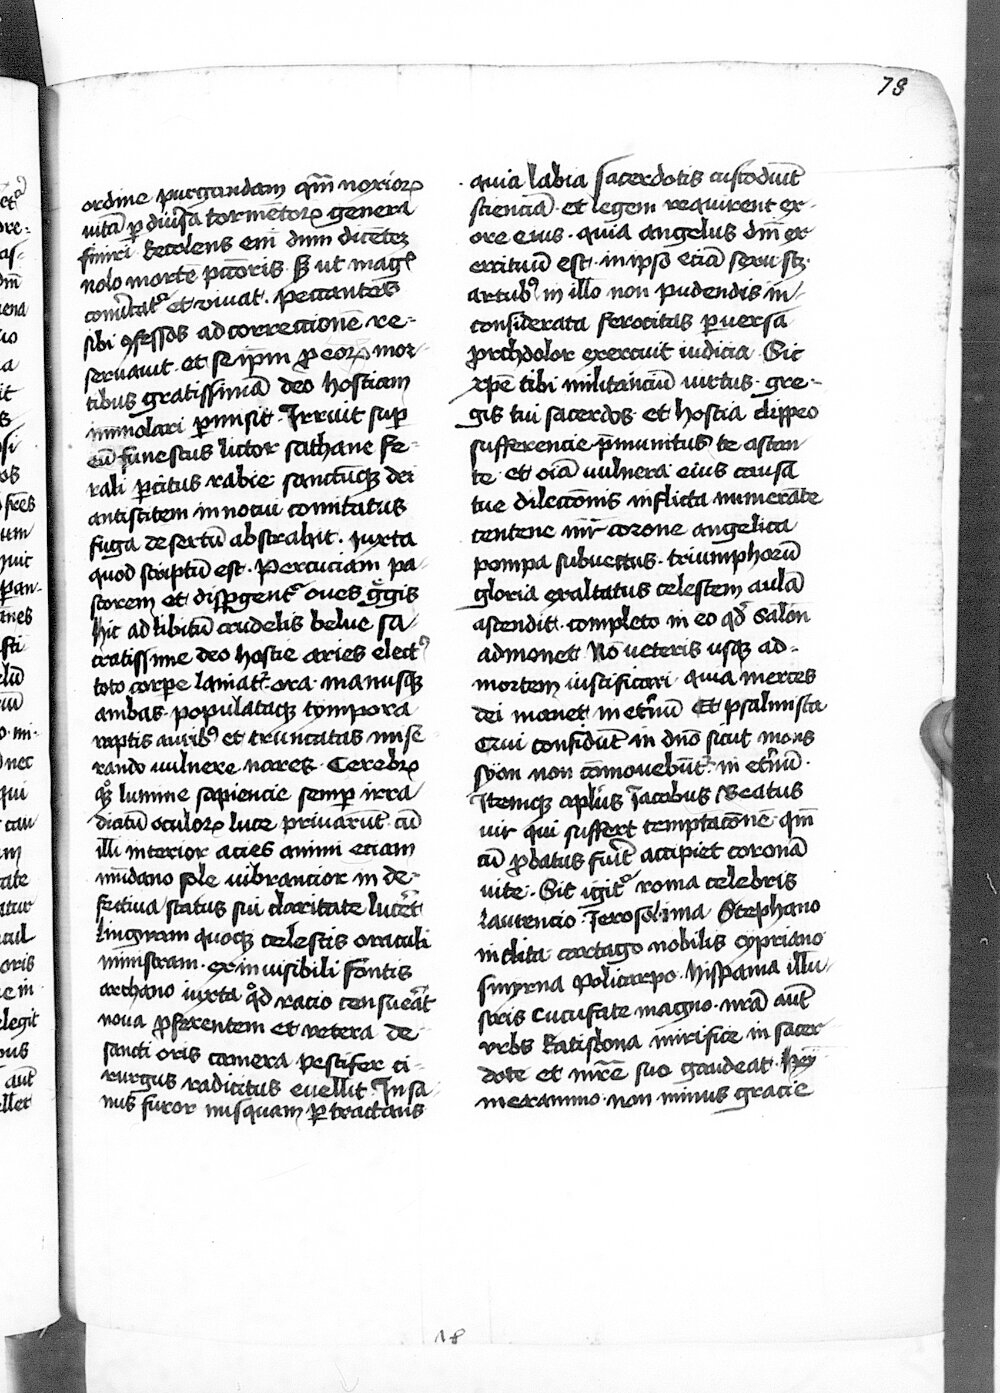 78
ordine purgandam qm̄ noxioꝝ
uitā ꝑ diu͛sa tormētoꝝ genera
finiri Recolens em̄ dnm̄ dicētē
nolo mortē pctōris. Sꝫ ut magꝭ
conu͛tatᷣ et viuat. peccantes
sibi ꝯfessos ad correctionē re-
seruauit. et se ip̄m ꝓ eoꝝ mor-
tibus gratissimā deo hostiam
immolari ꝑmisit. Irruit suꝑ
eū funestus lictor sathane fe-
rali ꝑcitus rabie. sanctūqꝫ dei
antistitem in nocui comitatus
fuga desertū abstrahit. iuxta
quod scriptū est. Percuciam pa-
storem et disꝑgentᷣ oues gͤgis
hic ad libitū crudelis belue sa-
cratissime deo hostie aries electꝰ
toto corpe laniatᷣ. ora. manusqꝫ
ambas. populataqꝫ tympora
raptis auribꝰ et truncatas mise-
rando vulnere nares. Cerebrꝝ
qꝫ lumine sapiencie semꝑ irra
diatū oculoꝝ luce priuarūt. cū
illi interior acies animi etiam
mūdano sole uibrancior in de-
fectiua status sui claritate lucēt
Lingwam quoqꝫ celestis oraculi
ministram. ex inuisibili fontis
archano iuxta qͦd racio censuēat
noua ꝓferentem et vetera de
sancti oris camera pestifer ci-
rurgus radicitus euellit. In sa-
nus furor nusquam ꝑtractans
quia labia sacerdotis custodiūt
scienciā. et legem requirent ex-
ore eius. quia angelus dm̄ ex
ercituū est. in ipso etiā sexu sꝫ.
artubꝰ in illo non pudendis in-
considerata ferocitas ꝑuersa
ꝓrchdolor exercuit iudicia. Sic
xp̄e tibi militanciū uirtus. gre-
gis tui sacerdos et hostia clippeo
sufferencie p̄munitus te astan
te. et oīa uulnera eius causa
tue dilectōnis inflicta numerate
centene mr̄ corone angelica
pompa subuectus. triumphorū
gloria exaltatus celestem aulā
ascendit. completo in eo qd̄ Salōn
admonet Nō ueteris usqꝫ ad-
mortem iustificari. quia merces
dei manet in etn̄ū Et psalmista
Qui confidūt in dn̄o sicut mons
syon non cōmouebūtᷣ. in etn̄ū.
Itemqꝫ aplūs Iacobus Beatus
uir qui suffert temptacōnē. qm̄
cū ꝓbatus fūīt accipiet coronā
uite. Sic igitᷣ roma celebris
Laurencio. Ierosolima Stephano
inclita cartago nobilis cypriano
smyrna policarpo. hispania illu-
stris Cucufate magno. nr̄a aut̄
vrbs Ratisbona mirifice in sacer
dote et mr̄e suo gaudeat.
merammo non minus gracie
18